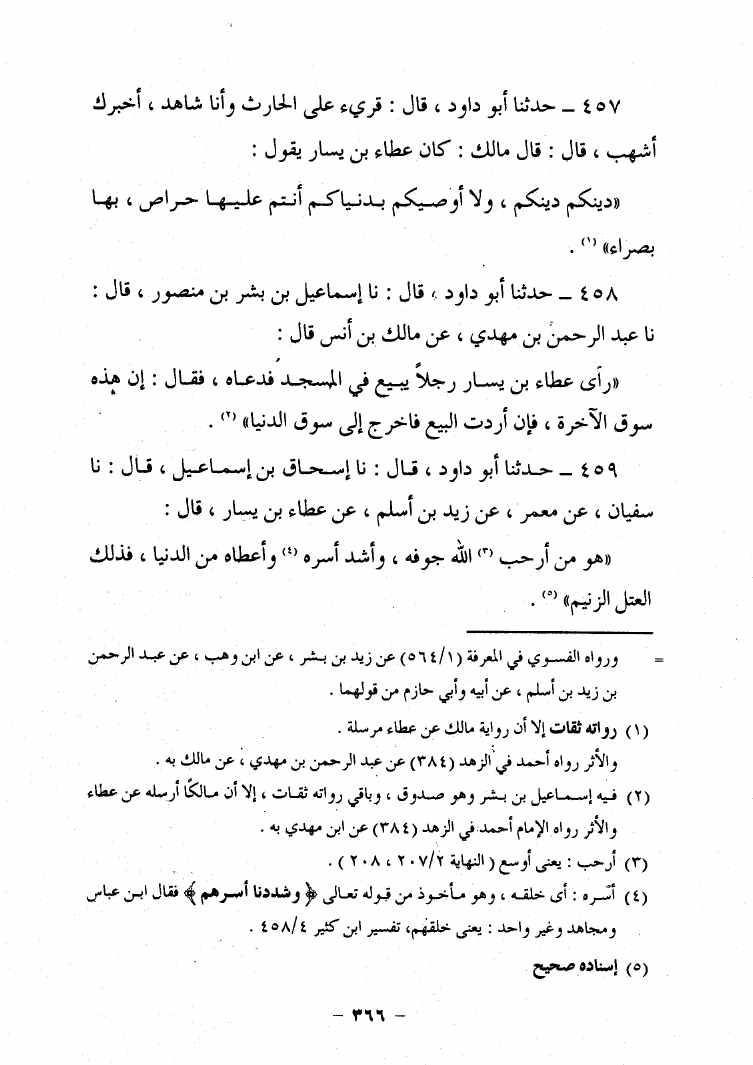 ٤٥٧ ــ حدثنا أبو داود ، قال : قريء على الحارث وأنا شاهد ، أخبرك
أشهب ، قال : قال مالك : كان عطاء بن يسار يقول :
«دينكم دينكم ، ولا أوصيكم بدنياكم أنتم عليها حراص ، بها
بصراء» (١) .
٤٥٨ ــ حدثنا أبو داود ، قال : نا إسماعيل بن بشر بن منصور ، قال :
نا عبد الرحمن بن مهدي ، عن مالك بن أنس قال :
«رأى عطاء بن يسار رجلاً يبيع في المسجد فدعاه ، فقال : إن هذه
سوق الآخرة ، فإن أردت البيع فاخرج إلى سوق الدنيا» (٢) .
٤٥٩ ــ حدثنا أبو داود ، قال : نا إسحاق بن إسماعيل ، قال : نا
سفيان ، عن معمر ، عن زيد بن أسلم ، عن عطاء بن يسار ، قال :
«هو من أرحب (٣) الله جوفه ، وأشد أسره (٤) وأعطاه من الدنيا ، فذلك
العتل الزنيم» (٥) .
= ورواه الفسوي في المعرفة (٥٦٤/١) عن زيد بن بشر ، عن ابن وهب ، عن عبد الرحمن
بن زيد بن أسلم ، عن أبيه وأبي حازم من قولهما .
(١) رواته ثقات إلا أن رواية مالك عن عطاء مرسلة .
والأثر رواه أحمد في الزهد (٣٨٤) عن عبد الرحمن بن مهدي ، عن مالك به .
(٢) فيه إسماعيل بن بشر وهو صدوق ، وباقي رواته ثقات ، إلا أن مالكًا أرسله عن عطاء
والأثر رواه الإمام أحمد في الزهد (٣٨٤) عن ابن مهدي به .
(٣) أرحب : يعنى أوسع ( النهاية ٢٠٧/٢ ، ٢٠٨ ) .
(٤) أسره : أى خلقه ، وهو مأخوذ من قوله تعالى ﴿ وشددنا أسرهم ﴾ فقال ابن عباس
ومجاهد وغير واحد : يعنى خلقهم، تفسير ابن كثير ٤٥٨/٤ .
(٥) إسناده صحيح
– ٣٦٦ –